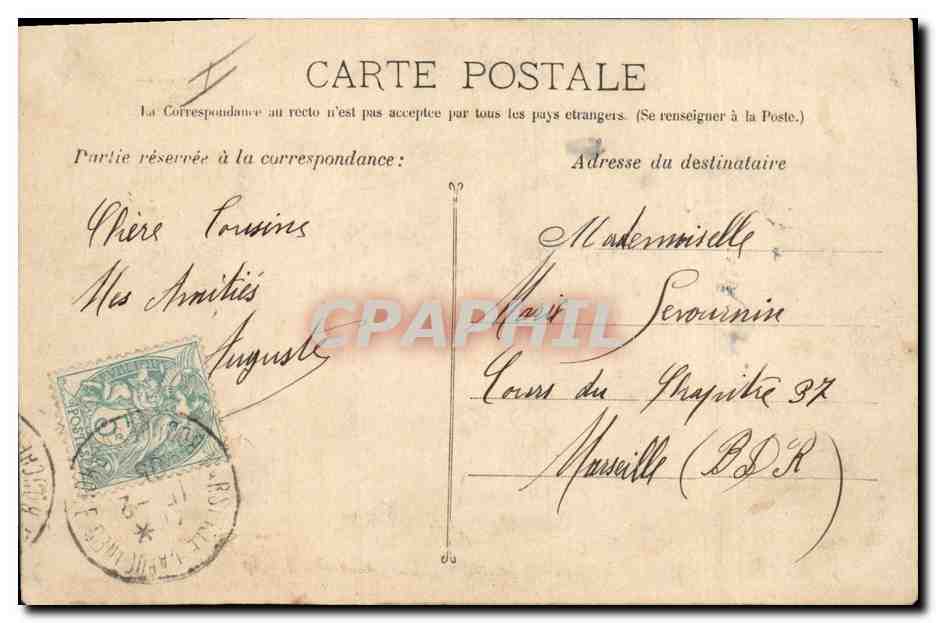 CARTE POSTALE
La Correspondance au recto n'est pas acceptee par tous les pays etrangers. (Se renseigner à la Poste.)
Partie réservée à la correspondance :
Adresse du destinataire
Chère Cousine
Mes Amitiés
Auguste
Mademoiselle
Marie Sevournin
Cours du Chapitre 37
Marseille (B D R)
CPAPHIL
5c
POSTES